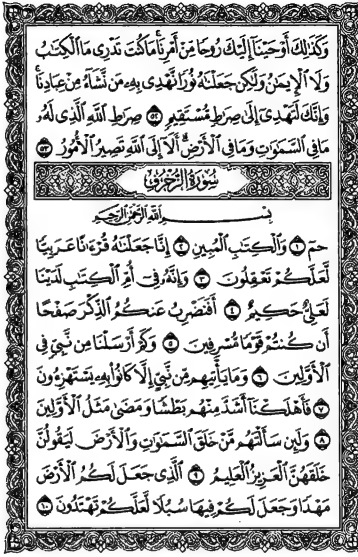 وَكَذَٰلِكَ أَوْحَيْنَا إِلَيْكَ رُوحًا مِّنْ أَمْرِنَا مَا كُنتَ تَدْرِى مَا ٱلْكِتَٰبُ
وَلَا ٱلْإِيمَٰنُ وَلَٰكِن جَعَلْنَٰهُ نُورًا نَّهْدِى بِهِۦ مَن نَّشَآءُ مِنْ عِبَادِنَا
وَإِنَّكَ لَتَهْدِىٓ إِلَىٰ صِرَٰطٍ مُّسْتَقِيمٍ ٥٢ صِرَٰطِ ٱللَّهِ ٱلَّذِى لَهُۥ
مَا فِى ٱلسَّمَٰوَٰتِ وَمَا فِى ٱلْأَرْضِ أَلَآ إِلَى ٱللَّهِ تَصِيرُ ٱلْأُمُورُ ٥٣
سُورَةُ الزُّخْرُفِ
بِسْمِ ٱللَّهِ ٱلرَّحْمَٰنِ ٱلرَّحِيمِ
حمٓ ١ وَٱلْكِتَٰبِ ٱلْمُبِينِ ٢ إِنَّا جَعَلْنَٰهُ قُرْءَٰنًا عَرَبِيًّا
لَّعَلَّكُمْ تَعْقِلُونَ ٣ وَإِنَّهُۥ فِىٓ أُمِّ ٱلْكِتَٰبِ لَدَيْنَا
لَعَلِىٌّ حَكِيمٌ ٤ أَفَنَضْرِبُ عَنكُمُ ٱلذِّكْرَ صَفْحًا
أَن كُنتُمْ قَوْمًا مُّسْرِفِينَ ٥ وَكَمْ أَرْسَلْنَا مِن نَّبِىٍّ فِى
ٱلْأَوَّلِينَ ٦ وَمَا يَأْتِيهِم مِّن نَّبِىٍّ إِلَّا كَانُوا۟ بِهِۦ يَسْتَهْزِءُونَ
٧ فَأَهْلَكْنَآ أَشَدَّ مِنْهُم بَطْشًا وَمَضَىٰ مَثَلُ ٱلْأَوَّلِينَ
٨ وَلَئِن سَأَلْتَهُم مَّنْ خَلَقَ ٱلسَّمَٰوَٰتِ وَٱلْأَرْضَ لَيَقُولُنَّ
خَلَقَهُنَّ ٱلْعَزِيزُ ٱلْعَلِيمُ ٩ ٱلَّذِى جَعَلَ لَكُمُ ٱلْأَرْضَ
مَهْدًا وَجَعَلَ لَكُمْ فِيهَا سُبُلًا لَّعَلَّكُمْ تَهْتَدُونَ ١٠